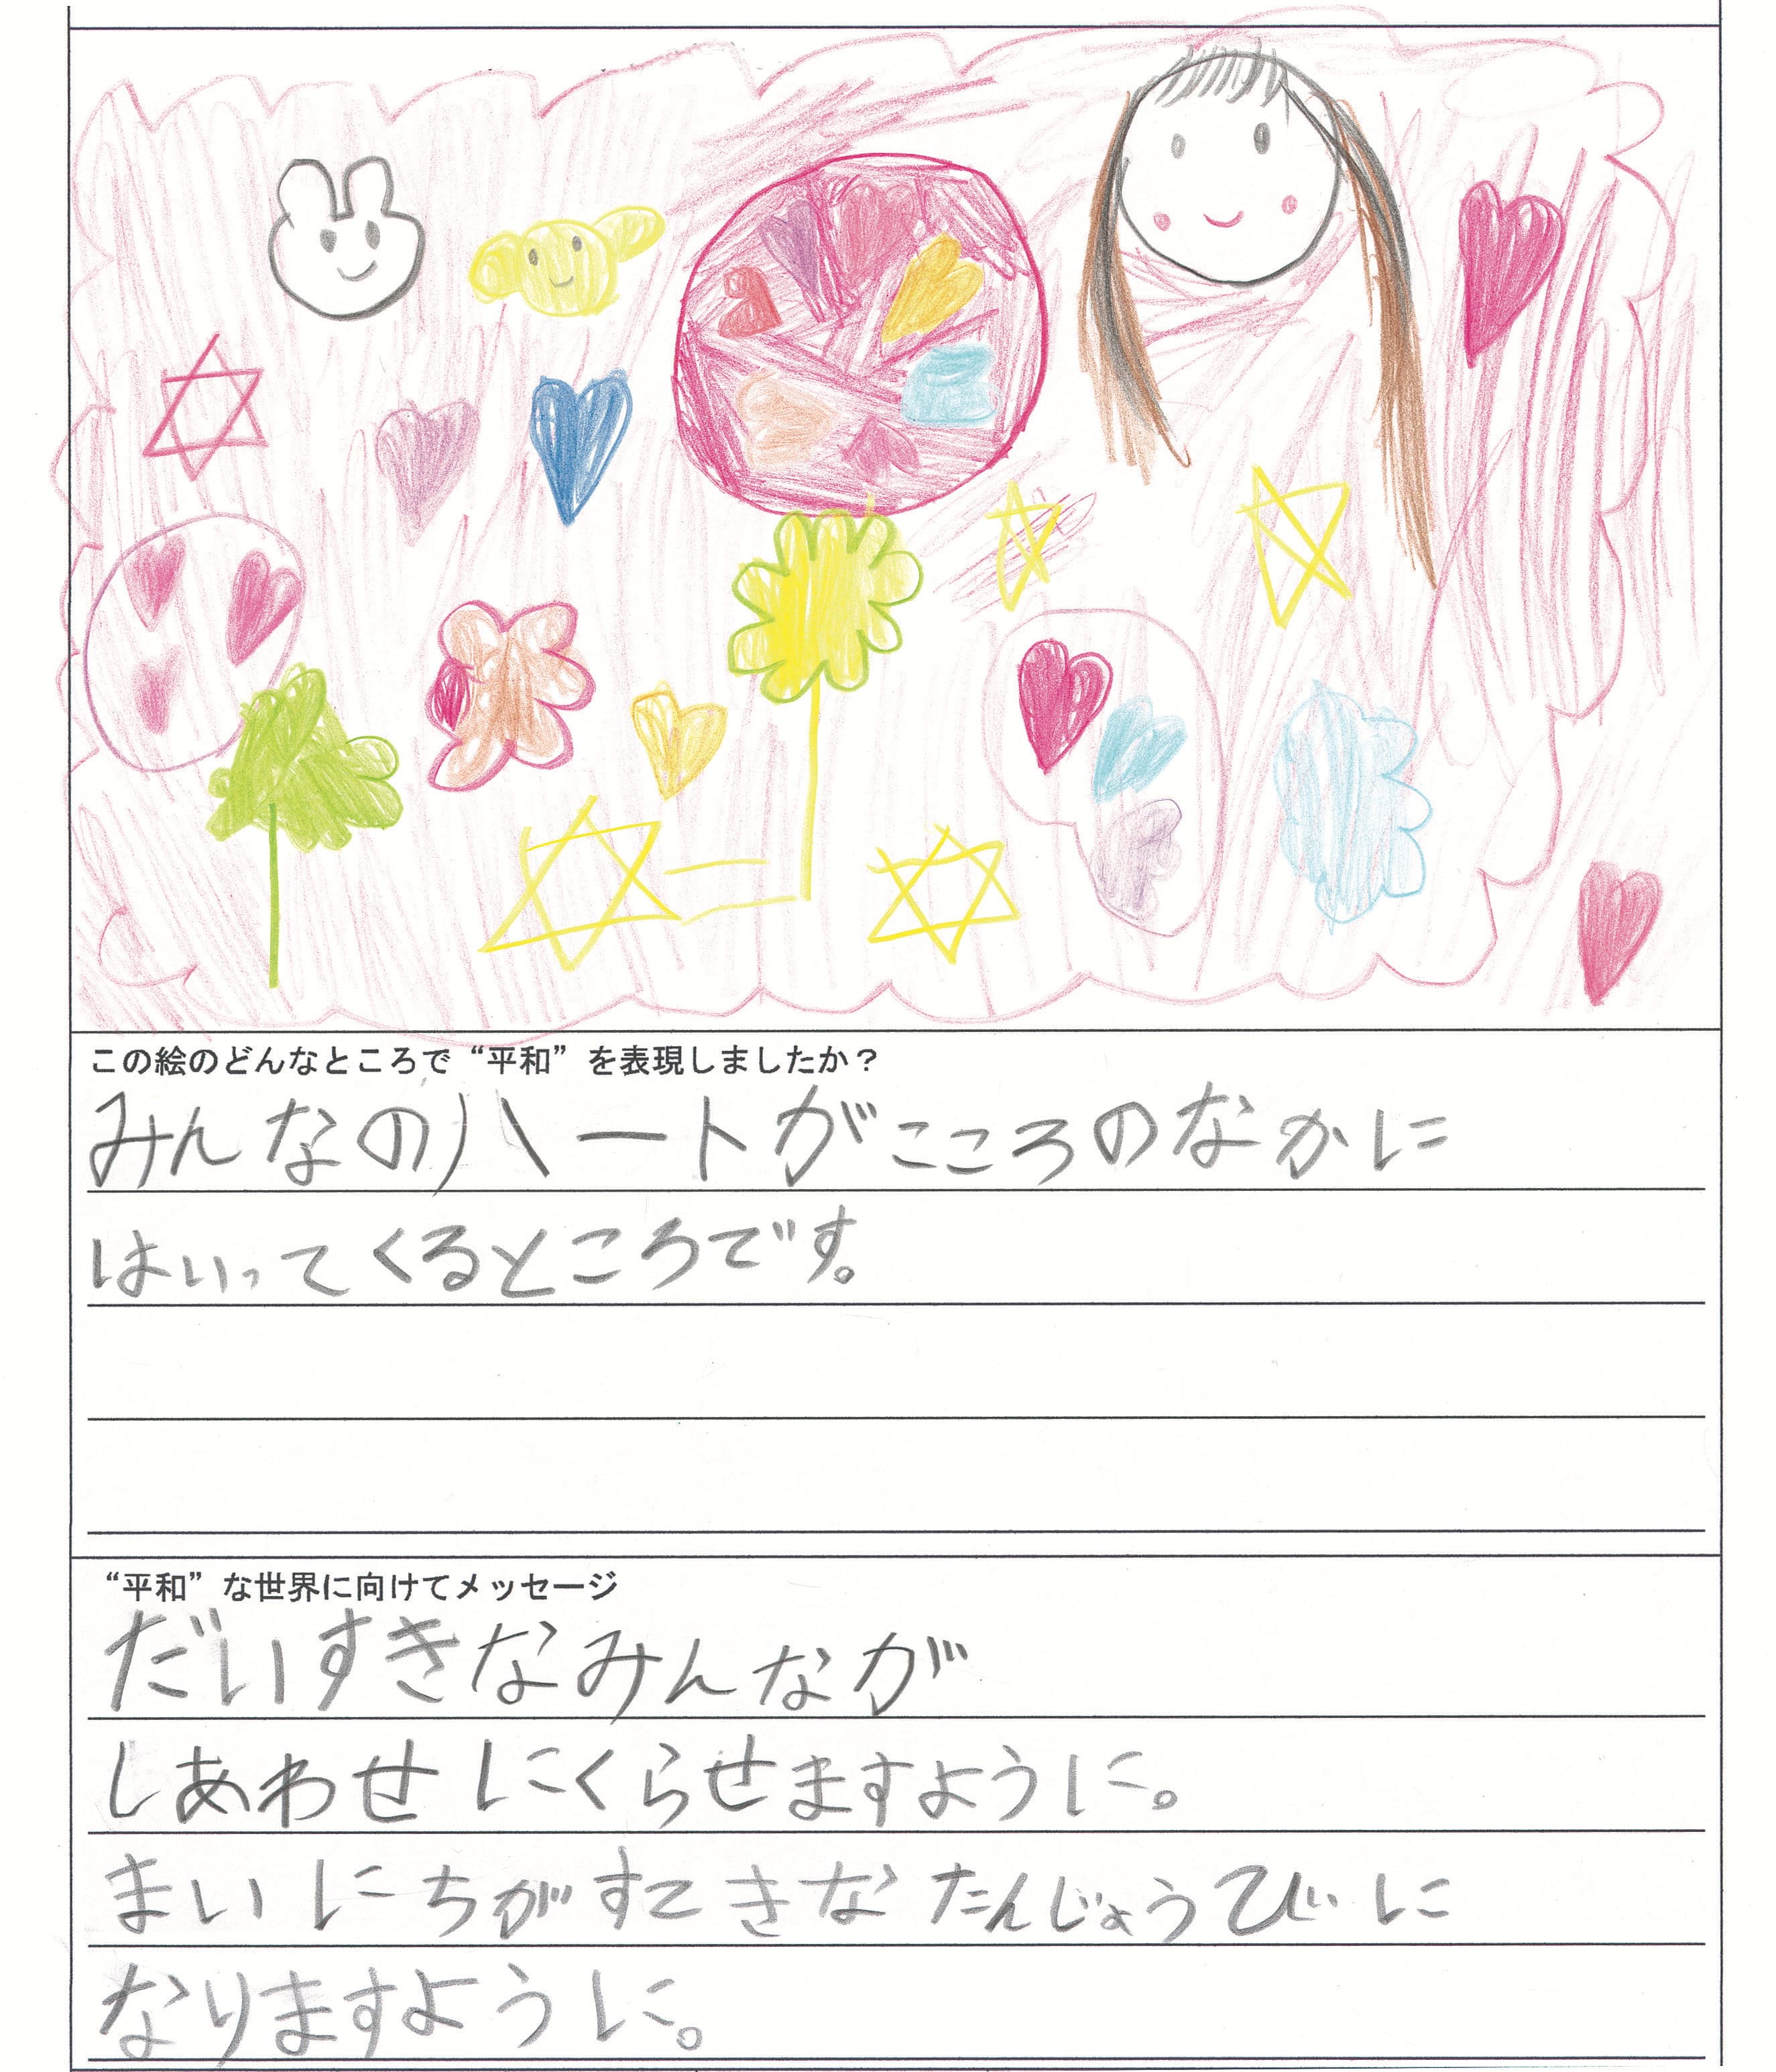 この絵のどんなところで“平和”を表現しましたか？
みんなのハートがこころのなかに
はいってくるところです。
“平和”な世界に向けてメッセージ
だいすきなみんなが
しあわせにくらせますように。
まいにちがすてきなたんじょうびに
なりますように。